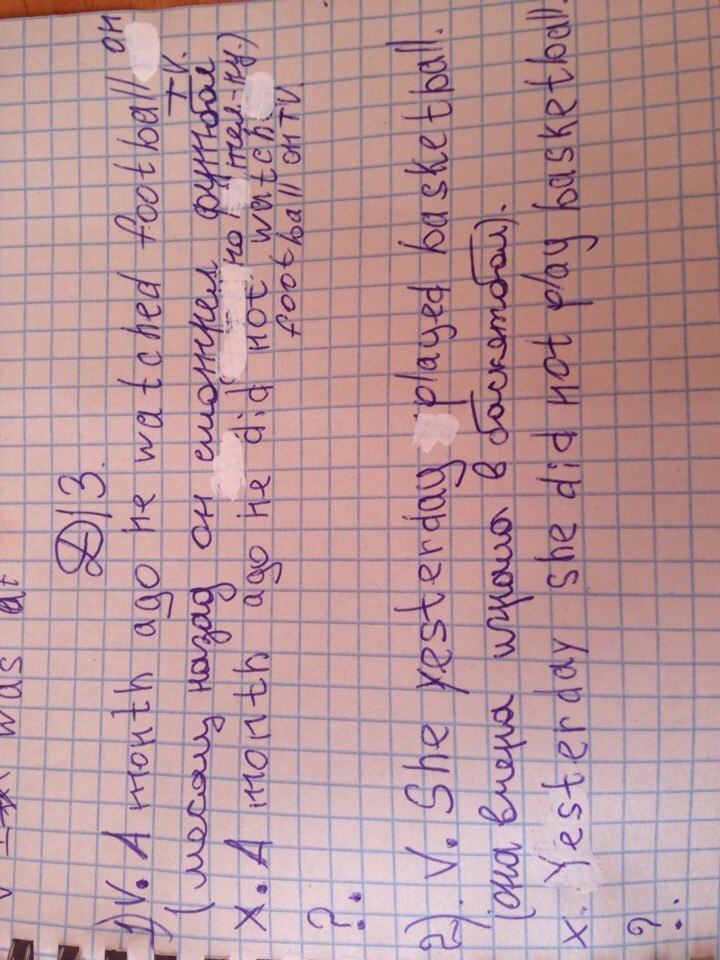 was at
Д/З.
1) V. A month ago he watched football on
TV.
(месяц назад он смотрел футбол
по тел-ру.)
X. A month ago he did not watch
football on TV
?.
2). V. She yesterday played basketball.
(она вчера играла в баскетбол).
x. Yesterday she did not play basketball.
?.